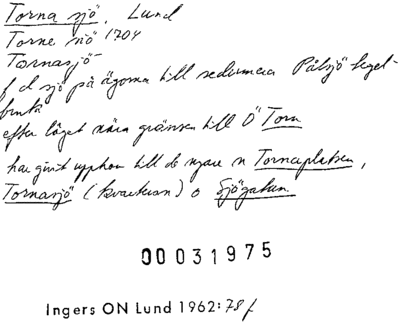 Torna sjö, Lund
Torne siö 1704
Tornasjö-
f d sjö på ägorna till sedermera Pålsjö tegel-
bruk
efter läget nära gränsen till Ö Torn
har givit upphov till de nyare n Tornaplatsen,
Tornasjö (kvarteran) o Sjögatan
00031975
Ingers ON Lund 1962:78 f